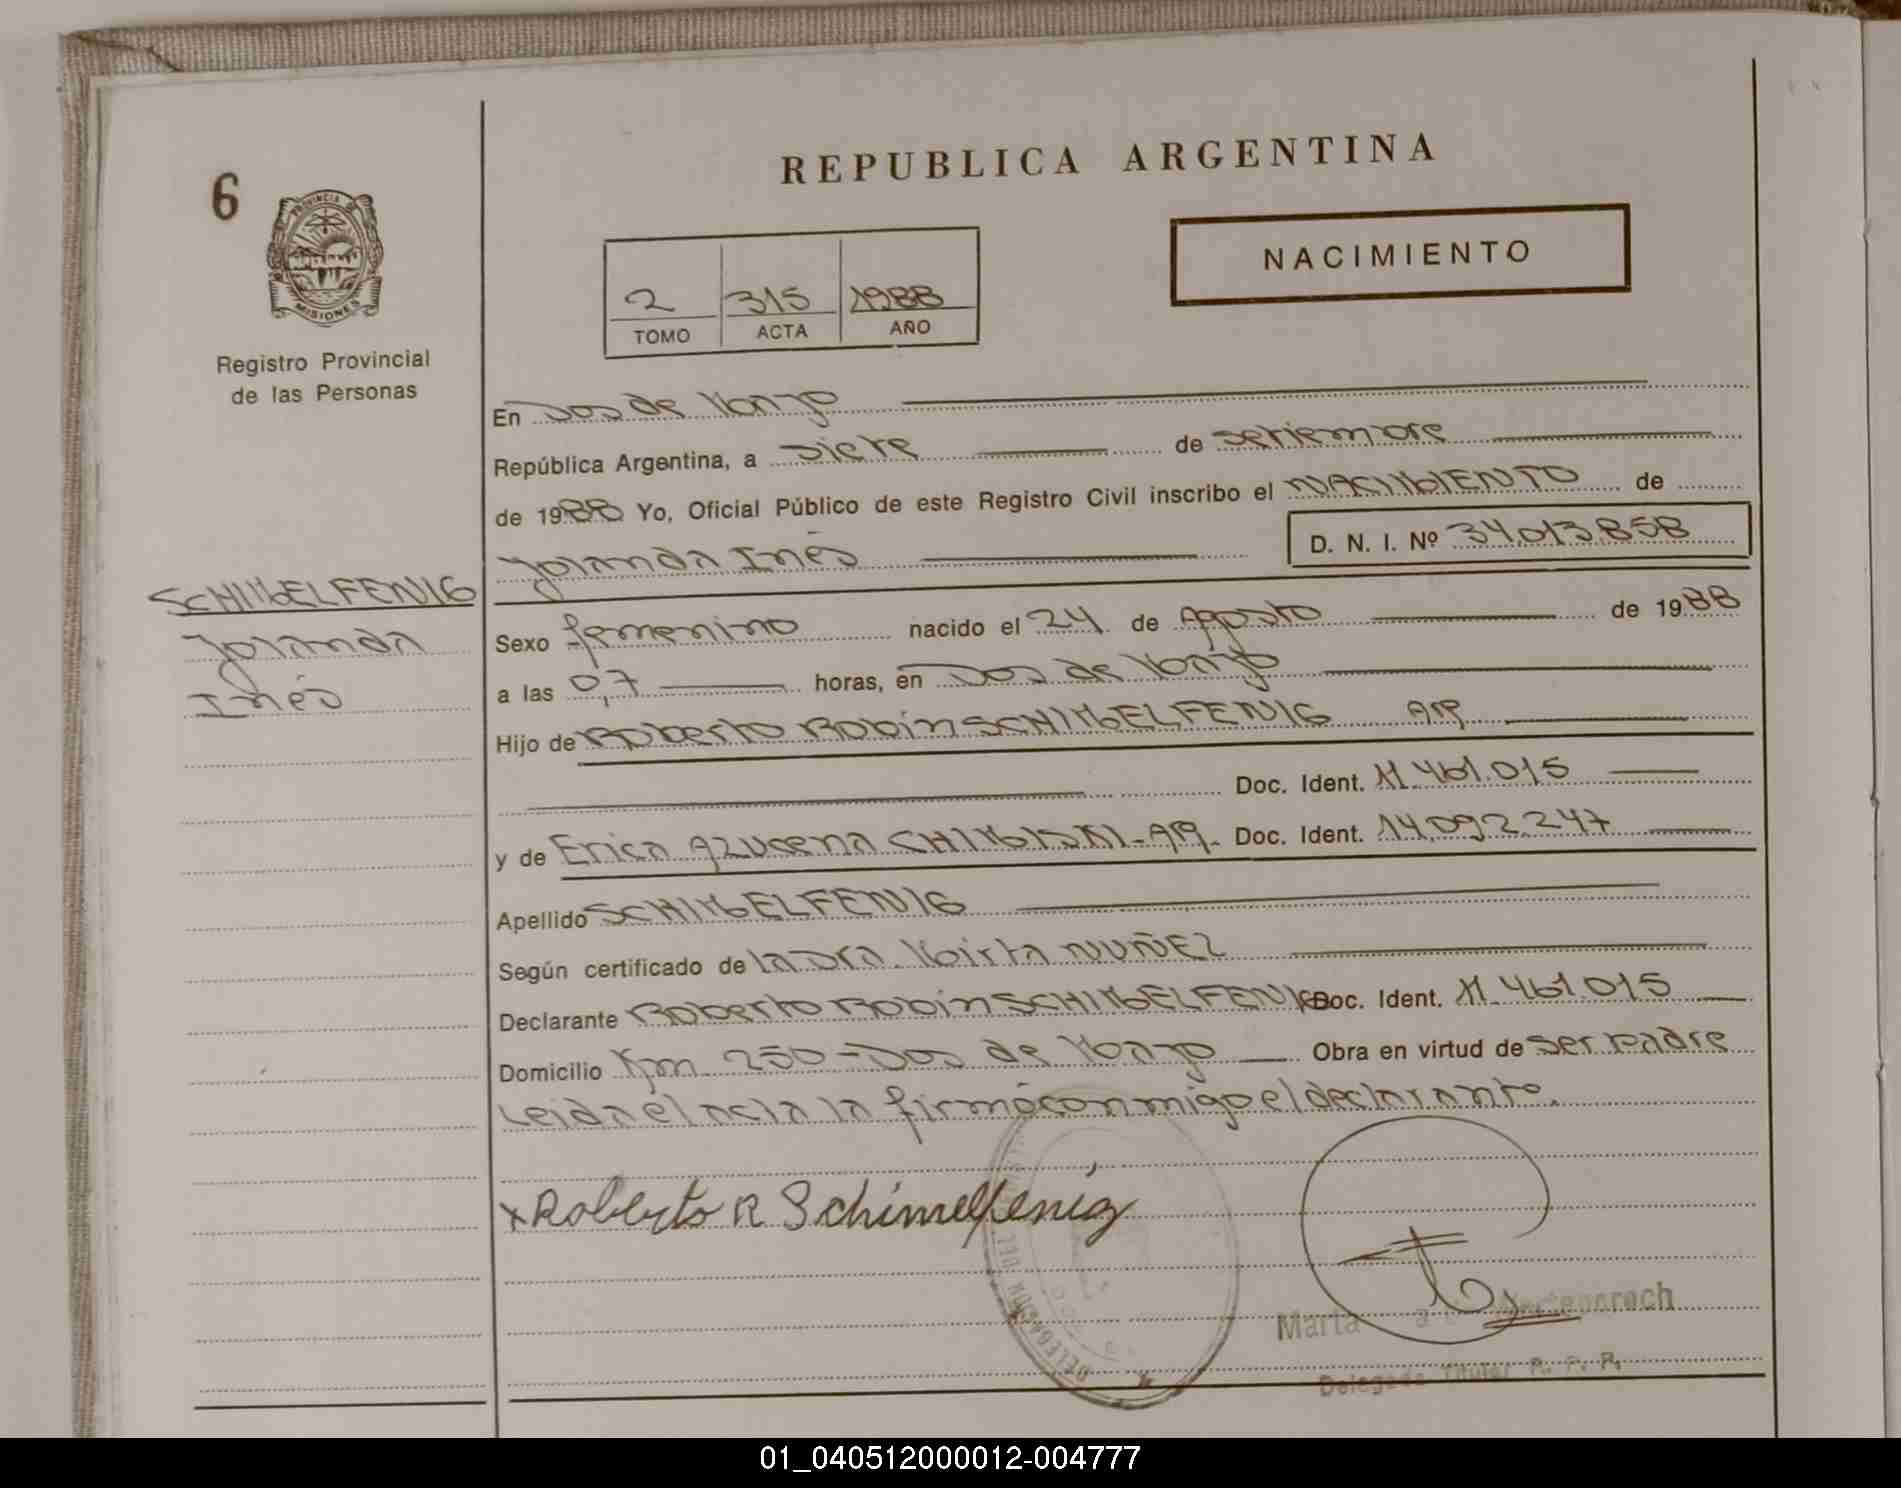 REPUBLICA ARGENTINA
6
PROVINCIA DE
MISIONES
NACIMIENTO
2 315 1988
TOMO ACTA AÑO
Registro Provincial
de las Personas
En Dos de Mayo
República Argentina, a siete de setiembre
de 1988 Yo, Oficial Público de este Registro Civil inscribo el NACIMIENTO de
Yolanda Inés D. N. I. Nº 34.013.858
SCHIMELFENIG
Yolanda
Inés
Sexo femenino nacido el 24 de Agosto de 1988
a las 0,7 horas, en Dos de Mayo
Hijo de Roberto Robin SCHIMELFENIG Arg.
Doc. Ident. 11.461.015
y de Erica Azucena Arg. Doc. Ident. 14.092.247
Apellido SCHIMELFENIG
Según certificado de la Dra. Mirta NUÑEZ
Declarante Roberto Robin SCHIMELFENIG Doc. Ident. 11.461.015
Domicilio Km 250 - Dos de Mayo Obra en virtud de ser padre
Leida el acta la firmó conmigo el declarante.
x Roberto R Schimelfenig
Marta
Delegada Titular R. P. P.
01_040512000012-004777